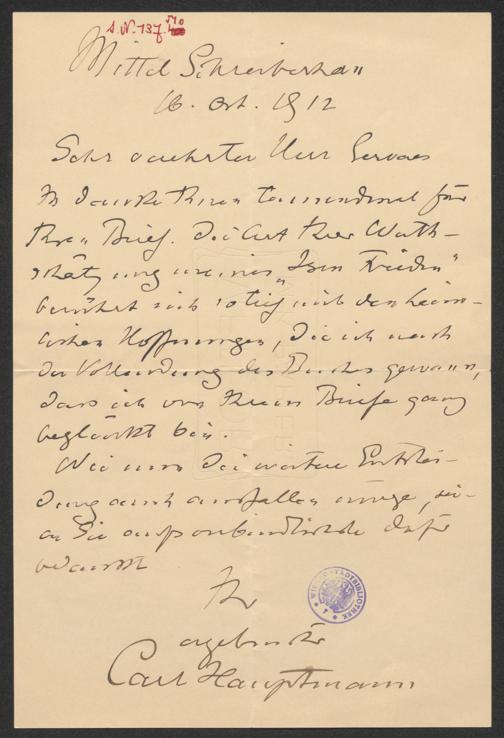 J.N. 137.510
Mittel Schreiberhau
16. Oct. 1912
Sehr verehrter Herr Servaes
Ich danke Ihnen tausendmal für
Ihren Brief. Die Art Ihrer Werth-
schätzung meines „Ism Frieden“
berührt sich so tief mit den heim-
lichen Hoffnungen, die ich nach
der Vollendung des Buches gewann,
dass ich von Ihrem Briefe ganz
beglückt bin.
Wie nun die weitere Entschei-
dung auch ausfallen möge, sei-
en Sie aufs verbindlichste dafür
bedankt
Ihr
ergebenster
Carl Hauptmann
WIENER STADTBIBLIOTHEK